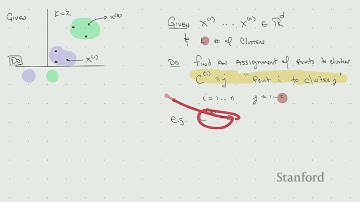 Given K=2
x⁽²⁾
Do
x⁽¹⁾
Given x⁽¹⁾ ... x⁽ⁿ⁾ ∈ ℝᵈ
& K # of Clusters
Do Find an assignment of Points to clusters
C⁽ⁱ⁾ = j "Point i to cluster j"
i = 1 ... n j = 1 ...
e.g.
Stanford